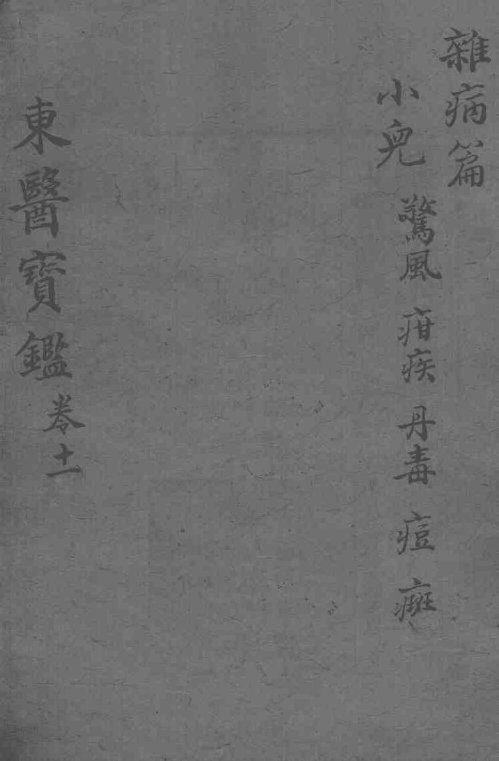 雜病篇
小兒 驚風 疳疾 丹毒 痘 癍
東醫寶鑑 卷十一